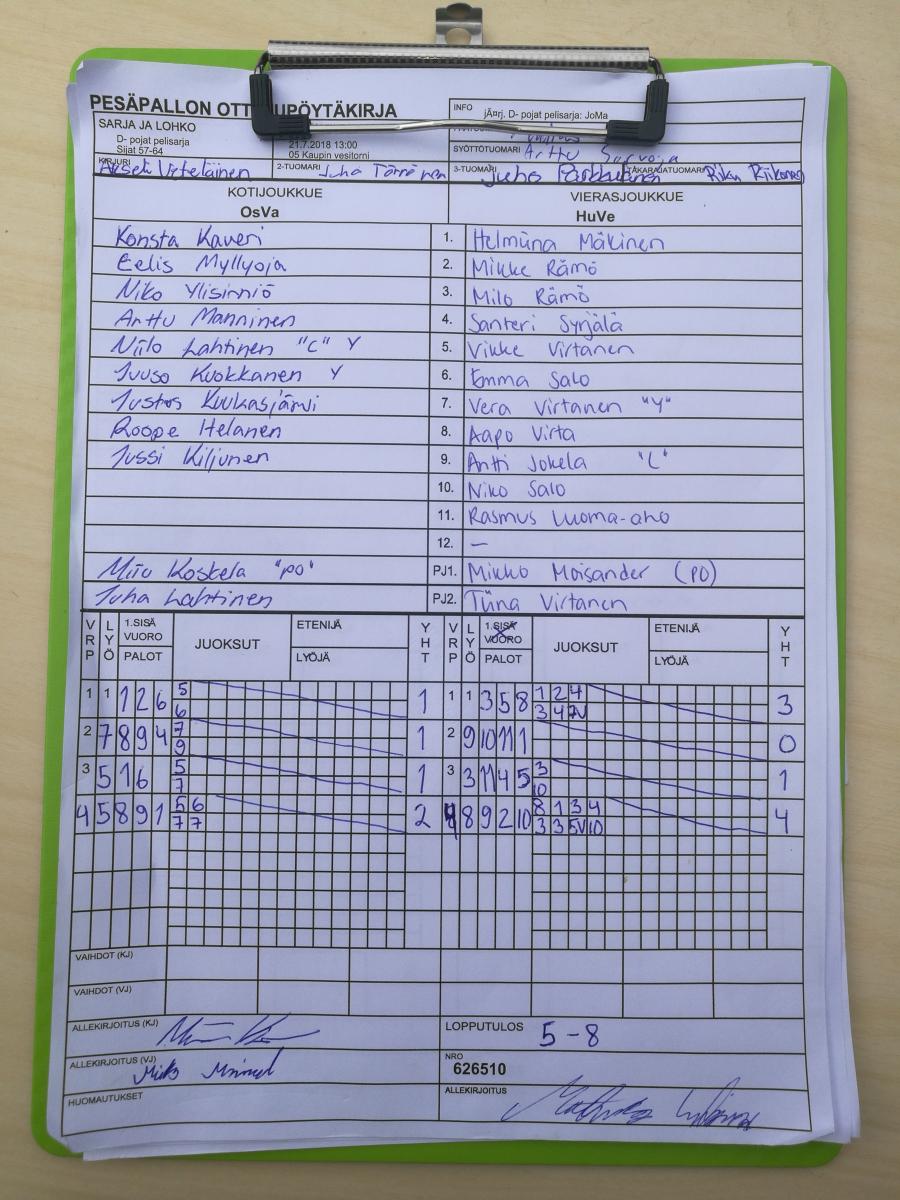 PESÄPALLON OTT UPÖYTÄKIRJA
INFO jÄ¤rj. D- pojat pelisarja: JoMa
SARJA JA LOHKO
D- pojat pelisarja
Sijat 57-64
21.7.2018 13:00
05 Kaupin vesitorni
SYÖTTÖTUOMARI Arttu
KIRJURI
2-TUOMARI Juha
3-TUOMARI Juho
TAKARAJATUOMARI Riku Riikonen
KOTIJOUKKUE VIERASJOUKKUE
OsVa HuVe
Konsta Kaveri 1. Helmiina Mäkinen
Eelis Myllyoja 2. Mikke Rämö
Niko Ylisirniö 3. Milo Rämö
Arttu Manninen 4. Santeri Syrjälä
Niilo Lahtinen "C" Y 5. Vikke Virtanen
Juuso Kuokkanen Y 6. Emma Salo
Justus Kuukasjärvi 7. Vera Virtanen "Y"
Roope Helanen 8. Aapo Virta
Jussi Kiljunen 9. Antti Jokela "C"
10. Niko Salo
11. Rasmus Luoma-aho
12. —
Miiu Koskela "po" PJ1. Mikko Moisander (PO)
Juha Lahtinen PJ2. Tiina Virtanen
VRP LYÖ 1.SISÄ VUORO PALOT JUOKSUT ETENIJÄ LYÖJÄ YHT VRP LYÖ 1.SISÄ VUORO PALOT JUOKSUT ETENIJÄ LYÖJÄ YHT
1 1 1 2 6 5 6 1 1 1 3 5 8 1 2 4 3 4 3
2 7 8 9 4 7 9 1 2 9 10 11 1 0
3 5 1 6 5 7 1 3 3 11 4 5 3 10 1
4 5 8 9 1 5 6 7 7 2 4 8 9 2 10 8 1 3 4 3 3 5V 10 4
VAIHDOT (KJ)
VAIHDOT (VJ)
ALLEKIRJOITUS (KJ) LOPPUTULOS 5-8
ALLEKIRJOITUS (VJ) NRO
626510
HUOMAUTUKSET ALLEKIRJOITUS